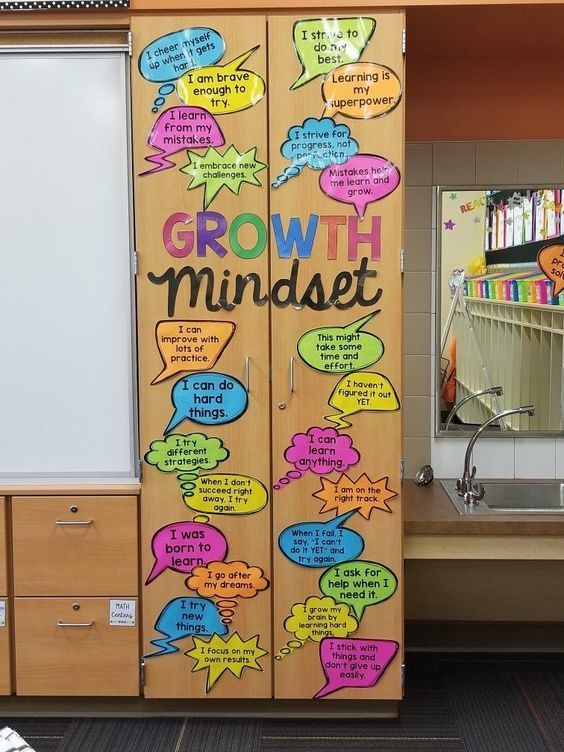 I cheer myself
up when it gets
hard.
I am brave
enough to
try.
I learn
from my
mistakes.
I embrace new
challenges.
I strive to
do my
best.
Learning is
my
superpower.
I strive for
progress, not
perfection.
Mistakes help
me learn and
grow.
GROWTH
Mindset
I can
improve with
lots of
practice.
I can do
hard
things.
I try
different
strategies.
When I don't
succeed right
away, I try
again.
I was
born to
learn.
I go after
my dreams.
I try
new
things.
I focus on my
own results.
This might
take some
time and
effort.
I haven't
figured it out
YET.
I can
learn
anything.
I am on the
right track.
When I fail, I
say, "I can't
do it YET" and
try again.
I ask for
help when I
need it.
I grow my
brain by
learning hard
things.
I stick with
things and
don't give up
easily.
MATH
Centers